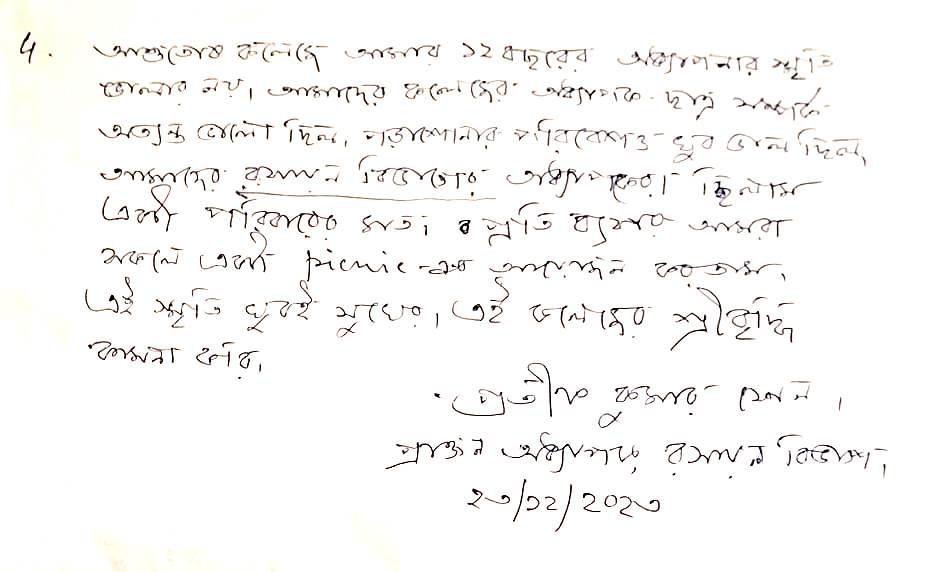 4. আশুতোষ কলেজে আমার ১২ বছরের অধ্যাপনার স্মৃতি
ভোলার নয়। আমাদের কলেজের অধ্যাপক-ছাত্র সম্পর্ক
অত্যন্ত ভালো ছিল, পড়াশোনার পরিবেশও খুব ভাল ছিল,
আমাদের রসায়ন বিভাগের অধ্যাপকেরা ছিলাম
একটা পরিবারের মত। প্রতি বৎসর আমরা
সকলে একটা picnic-এর আয়োজন করতাম,
এই স্মৃতি খুবই সুখের। এই কলেজের শ্রীবৃদ্ধি
কামনা করি,
প্রতীক কুমার সেন।
প্রাক্তন অধ্যাপক, রসায়ন বিভাগ,
২৩/১২/২০২৩